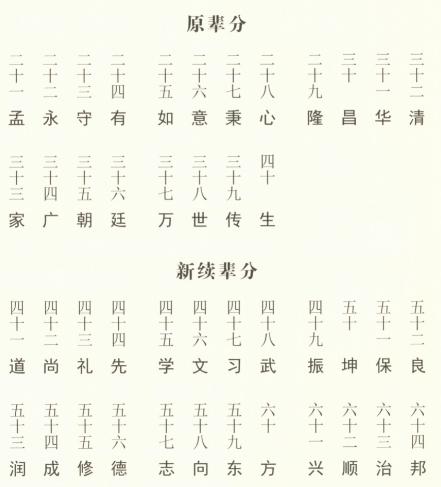 原辈分
二十一 二十二 二十三 二十四 二十五 二十六 二十七 二十八 二十九 三十 三十一 三十二
孟 永 守 有 如 意 秉 心 隆 昌 华 清
三十三 三十四 三十五 三十六 三十七 三十八 三十九 四十
家 广 朝 廷 万 世 传 生
新续辈分
四十一 四十二 四十三 四十四 四十五 四十六 四十七 四十八 四十九 五十 五十一 五十二
道 尚 礼 先 学 文 习 武 振 坤 保 良
五十三 五十四 五十五 五十六 五十七 五十八 五十九 六十 六十一 六十二 六十三 六十四
润 成 修 德 志 向 东 方 兴 顺 治 邦